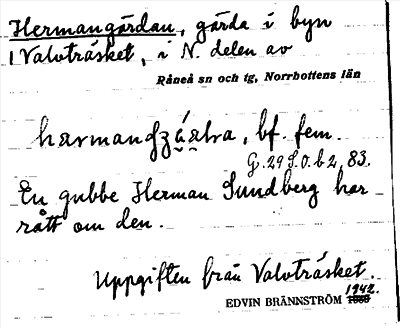 Hermangärdan, gärda i byn
Valvträsket, i N. delen av
Råneå sn och tg, Norrbottens län
bf. fem.
G. 29 S. 0. b 2, 83.
En gubbe Herman Sundberg har
rått om den.
Uppgiften från Valvträsket.
1942.
EDVIN BRÄNNSTRÖM